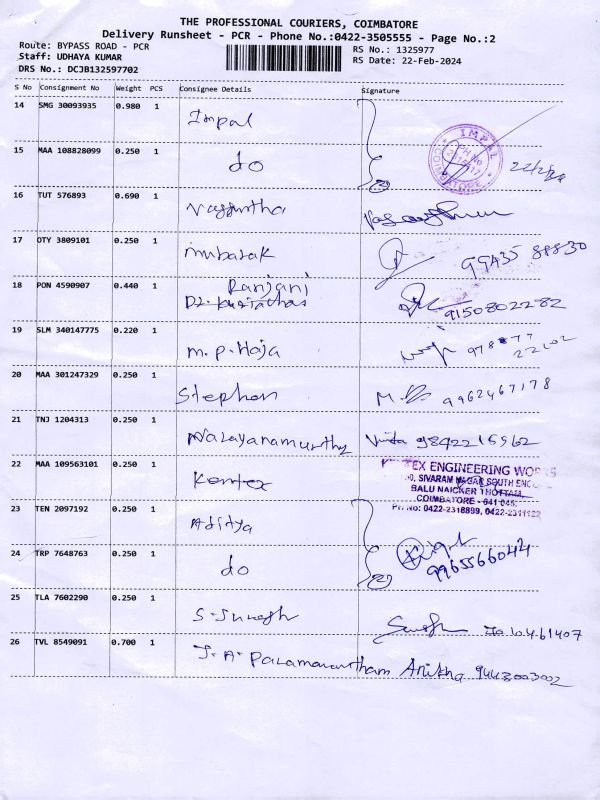 THE PROFESSIONAL COURIERS, COIMBATORE
Delivery Runsheet - PCR - Phone No.:0422-3505555 - Page No.:2
Route: BYPASS ROAD - PCR
RS No.: 1325977
Staff: UDHAYA KUMAR
RS Date: 22-Feb-2024
DRS No.: DCJB132597702
S No Consignment No Weight PCS Consignee Details Signature
14 SMG 30093935 0.980 1 Impal
IMPAL COIMBATORE
15 MAA 108828099 0.250 1 do
16 TUT 576893 0.690 1
17 OTY 3809101 0.250 1 mubarak 99435 88830
18 PON 4590907 0.440 1 Ranjani
Dr. 9150802282
19 SLM 340147775 0.220 1 M.P. Haja
20 MAA 301247329 0.250 1 Stephen 9962467178
21 TNJ 1204313 0.250 1 Narayanamurthy 9842215962
22 MAA 109563101 0.250 1 Kemtex
TEX ENGINEERING WORKS
SIVARAM NAGAR SOUTH END
BALU NAICKER THOTTAM,
COIMBATORE - 641 045.
Ph No: 0422-2318899, 0422-2311122
23 TEN 2097192 0.250 1 Aditya
24 TRP 7648763 0.250 1 do 9965566042
25 TLA 7602290 0.250 1 S. Suresh Suresh
26 TVL 8549091 0.700 1 J. A. Paramarurtham Anikha 9443003002